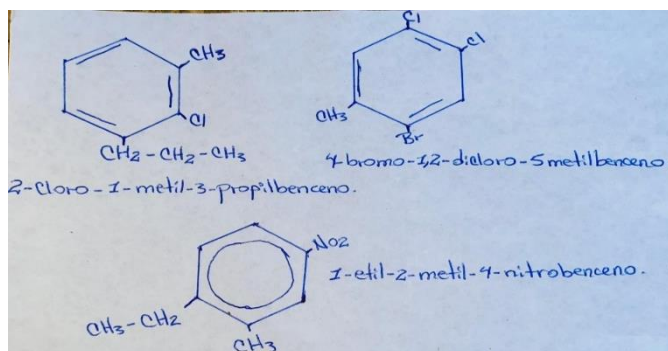 CH3
Cl
CH2-CH2-CH3
2-Cloro-1-metil-3-propilbenceno.
Cl
Cl
CH3
Br
4-bromo-1,2-dicloro-5metilbenceno
NO2
CH3-CH2
CH3
1-etil-2-metil-4-nitrobenceno.